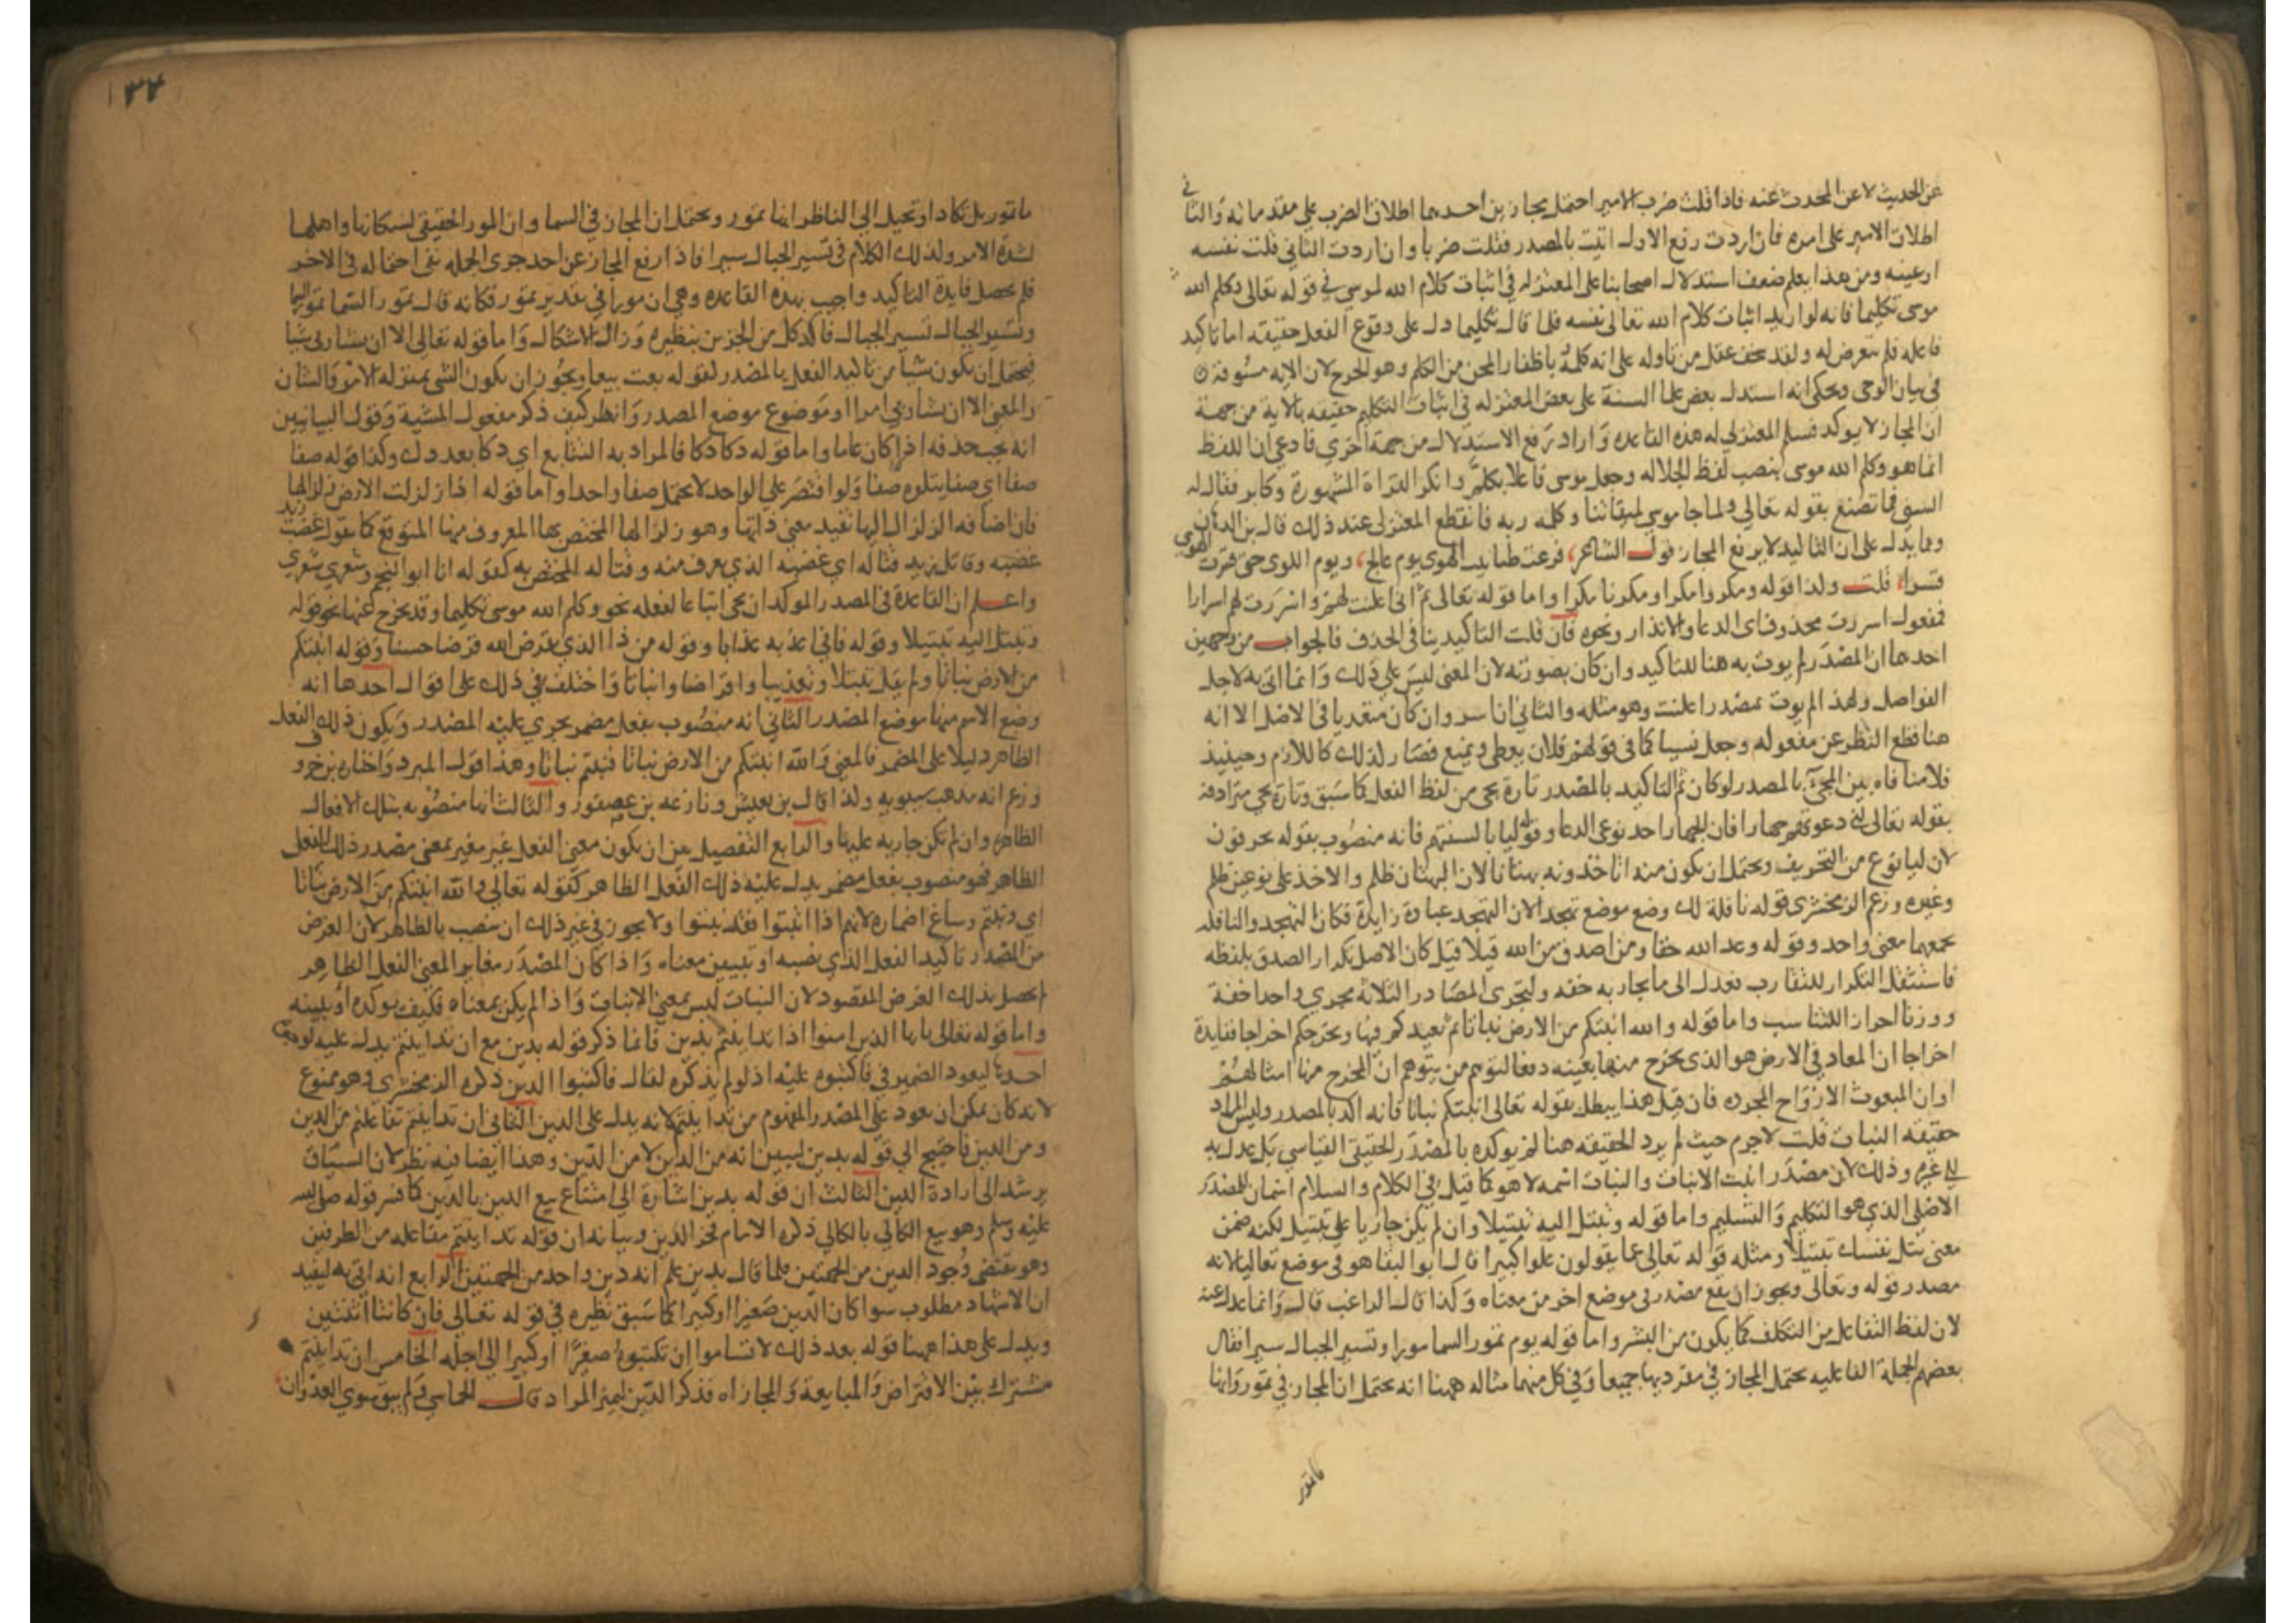 عن الحديث لا عن المحدث عنه فاذا قلت ضرب الامير احتمل مجازين احدهما اطلاق الضرب على مقدماته والثاني
اطلاق الامير على امره فان اردت رفع الاول اتيت بالمصدر فقلت ضربا وان اردت الثاني قلت نفسه
او عينه ومن هذا يعلم ضعف استدلال اصحابنا على المعتزله في اثبات كلام الله لموسى في قوله تعالى وكلم الله
موسى تكليما فانه لو اريد اثبات كلام الله تعالى نفسه فلما قال تكليما دل على وقوع الفعل حقيقه اما تاكيد
فاعله فلم يتعرض له ولقد سخف عقل من تاوله على انه كلمه باظفار المحن من الكلم وهو الجرح لان الايه مسوقة
في بيان الوحي ويحكى انه استدل بعض علما السنة على بعض المعتزله في اثبات التكليم حقيقه بالاية من جهة
ان المجاز لا يوكد فسلم المعتزلي له هذه القاعده واراد رفع الاستدلال من جهة اخري فادعي ان اللفظ
انما هو وكلم الله موسى بنصب لفظ الجلاله وجعل موسى فاعلا بكلم وانكر القراة المشهورة وكابر فقال له
السني فما تصنع بقوله تعالي ولما جا موسي لميقاتنا وكلمه ربه فانقطع المعتزلى عند ذلك قال بن الدهان
ومما يدل على ان التاكيد لا يرفع المجاز قول الشاعر قرعت ظنابيب الهوى يوم عالج ويوم اللوى حتى قسرت الهوي
قسرا قلت ولذا قوله ومكروا مكرا ومكرنا مكرا واما قوله تعالى ثم انى اعلنت لهم واسررت لهم اسرارا
فمفعول اسررت محذوف اى الدعا والانذار ونحوه فان قلت التاكيد ينافى الحذف فالجواب من وجهين
احدهما ان المصدر لم يوت به هنا للتاكيد وان كان بصورته لان المعنى ليس على ذلك وانما اتى به لاجل
الفواصل ولهذا لم يوت بمصدر اعلنت وهو مثله والثاني ان اسر وان كان متعديا في الاصل الا انه
هنا قطع النظر عن مفعوله وجعل نسيا كما في قولهم فلان يعطى ويمنع فصار لذلك كاللازم وحينيذ
فلا منافاه بين المجئ بالمصدر لو كان ثم التاكيد بالمصدر تارة يجى من لفظ الفعل كما سبق وتارة يجي مترادفه
بقوله تعالى انى دعوتهم جهارا فان الجهار احد نوعى الدعا وقوله ليا بالسنتهم فانه منصوب بقوله يحرفون
لان ليا نوع من التحريف ويحتمل ان يكون منه اتاخذونه بهتانا لان البهتان ظلم والاخذ على نوعين ظلم
وغيره وزعم الزمخشرى قوله نافلة لك وضع موضع تهجدا لان التهجد عبادة زايدة فكان التهجد والنافله
يجمعهما معنى واحد وقوله وعد الله حقا ومن اصدق من الله قيلا قيل كان الاصل تكرار الصدق بلفظه
فاستثقل التكرار للتقارب فعدل الى ما يجاريه خفه ولتجرى المصادر الثلاثة مجري واحدا خفة
ووزنا احرازا للتناسب واما قوله والله انبتكم من الارض نباتا ثم يعيدكم فيها ويخرجكم اخراجا ففايدة
اخراجا ان المعاد في الارض هو الذى يخرج منها بعينه دفعا لتوهم من يتوهم ان المخرج منها امثالهم
او ان المبعوث الارواح المجرده فان قيل هذا يبطل بقوله تعالى انبتكم نباتا فانه اكد بالمصدر وليس المراد
حقيقه النبات قلت لا جرم حيث لم يرد الحقيقه هنا لم يوكده بالمصدر الحقيقى القياسي بل عدل به
الي غيره وذلك لان مصدر انبت الانبات والنبات اسمه لا هو كما قيل في الكلام والسلام اسمان للمصدر
الاصلى الذي هو التكليم والتسليم واما قوله وتبتل اليه تبتيلا وان لم يكن جاريا على تبتيل لكنه ضمن
معنى بتل نفسك تبتيلا ومثله قوله تعالى عما يقولون علوا كبيرا قال ابو البقا هو فى موضع تعاليا لانه
مصدر قوله وتعالى ويجوز ان يقع مصدر في موضع اخر من معناه وكذا قال الراغب قال وانما عدل عنه
لان لفظ التفاعل من التكلف كما يكون من البشر واما قوله يوم تمور السما مورا وتسير الجبال سيرا فقال
بعضهم الجملة الفاعليه تحتمل المجاز في مفرديها جميعا وفي كل منهما مثاله ههنا انه يحتمل ان المجاز في تمور وانها
ما تمور
١٣٤
ما تمور بل تكاد او تخيل الى الناظر انها تمور ويحتمل ان المجاز في السما وان المور الحقيقي لسكانها واهلها
لشدة الامر ولذلك الكلام في تسير الجبال سيرا فاذا رفع المجاز عن احد جزي الجمله نفي احتماله في الاخر
فلم تحصل فايدة التاكيد واجيب بهذه القاعده وهي ان مورا في تقدير تمور فكانه قال تمور السما تمور السما
وتسير الجبال تسير الجبال فاكد كل من الجزين بنظيره وزال الاشكال واما قوله تعالي الا ان يشا ربي شيا
فيحتمل ان يكون شيا من تاكيد الفعل بالمصدر لقوله بعت بيعا ويجوز ان يكون الشي بمنزله الامر والشان
والمعنى الا ان يشا ربي امرا او موضوع موضع المصدر وانظر كيف ذكر مفعول المشية وقول البيانيين
انه يجب حذفه اذا كان عاما واما قوله دكا دكا فالمراد به التتابع اي دكا بعد دك وكذا قوله صفا
صفا اي صفا يتلوه صفا ولو اقتصر على الواحد لا يحتمل صفا واحدا واما قوله اذا زلزلت الارض زلزالها
فان اضافه الزلزال اليها تفيد معنى ذاتها وهو زلزالها المختص بها المعروف منها المتوقع كما يقول غضب زيد
غضبه وقاتل زيد قتاله اي غضبه الذي يعرف منه وقتاله المختص به كقوله انا ابو النجم وشعري شعري
واعلم ان القاعدة في المصدر الموكد ان يجى اتباعا لفعله نحو وكلم الله موسى تكليما وقد يخرج عنها نحو قوله
وتبتل اليه تبتيلا وقوله فاني اعذبه عذابا وقوله من ذا الذي يقرض الله قرضا حسنا وقوله انبتكم
من الارض نباتا ولم يقل تبتلا وتعذيبا واقراضا وانباتا واختلف في ذلك على اقوال احدها انه
وضع الاسم منها موضع المصدر الثاني انه منصوب بفعل مضمر يجري عليه المصدر ويكون ذلك الفعل
الظاهر دليلا على المضمر فالمعنى والله انبتكم من الارض نباتا فنبتم نباتا وهذا قول المبرد واختاره بن خروف
وزعم انه مذهب سيبويه ولذا قال بن يعيش ونازعه بن عصفور والثالث انها منصوبه بتلك الافعال
الظاهره وان لم تكن جاريه عليها والرابع التفصيل بين ان يكون معنى الفعل غير مغير بمعنى مصدر ذلك الفعل
الظاهر فهو منصوب بفعل مضمر يدل عليه ذلك الفعل الظاهر كقوله تعالي والله انبتكم من الارض نباتا
اي ونبتم وساغ اضماره لانهم اذا انبتوا فقد نبتوا ولا يجوز في غير ذلك ان ينصب بالظاهر لان الغرض
من المصدر تاكيد الفعل الذي نصبه او تبيين معناه واذا كان المصدر مغايرا لمعنى الفعل الظاهر
لم يحصل بذلك الغرض المقصود لان النبات ليس بمعنى الانبات واذا لم يكن بمعناه فكيف يوكده او يبينه
واما قوله تعالى يايها الذين امنوا اذا تداينتم بدين فانما ذكر قوله بدين مع ان تداينتم يدل عليه لوجوه
احدها ليعود الضمير في فاكتبوه عليه اذ لو لم يذكره لقال فاكتبوا الدين ذكره الزمخشرى وهو ممنوع
لانه كان يمكن ان يعود على المصدر المفهوم من تداينتم لانه يدل على الدين الثاني ان تداينتم تفاعلتم من الدين
ومن الدين فاحتيج الي قوله بدين ليبين انه من الدين لا من الدين وهذا ايضا فيه نظر لان السياق
يرشد الى ارادة الدين الثالث ان قوله بدين اشارة الى امتناع بيع الدين بالدين كما فسر قوله صلى الله
عليه وسلم وهو بيع الكالي بالكالي ذكره الامام فخر الدين وبيانه ان قوله تداينتم مفاعله من الطرفين
وهو يقتضى وجود الدين من الجهتين فلما قال بدين علم انه دين واحد من الجهتين الرابع انه اتى به ليفيد
ان الاشهاد مطلوب سوا كان الدين صغيرا او كبيرا كما سبق نظيره في قوله تعالي فان كانتا اثنتين
ويدل على هذا ههنا قوله بعد ذلك لا تساموا ان تكتبوه صغيرا او كبيرا الى اجله الخامس ان تداينتم
مشترك بين الاقتراض والمبايعة والمجازاه فذكر الدين لتميز المراد قال الحماسي ولم يبق سوي العدوان